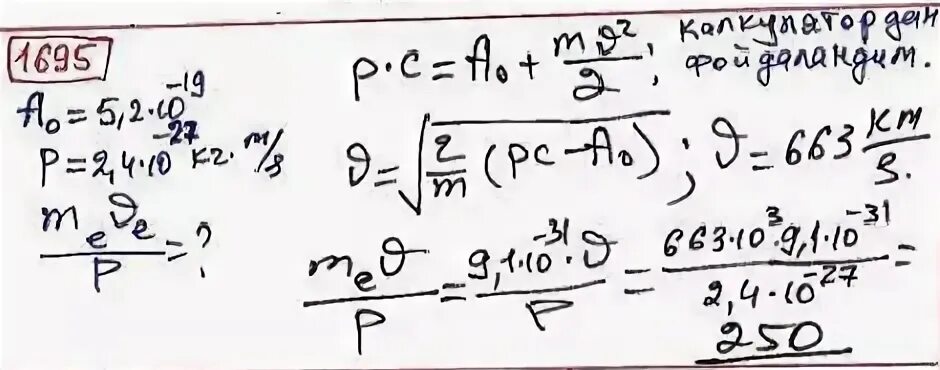 1695
A₀ = 5,2·10⁻¹⁹
P = 2,4·10⁻²⁷ кг·m/s
mₑϑₑ/P = ?
p·c = A₀ + mϑ²/2; калкулатордан
фойдаландим.
ϑ = √(2/m (pc − A₀)); ϑ = 663 km/s.
mₑϑ/P = 9,1·10⁻³¹·ϑ/P = 663·10³·9,1·10⁻³¹/2,4·10⁻²⁷ =
250